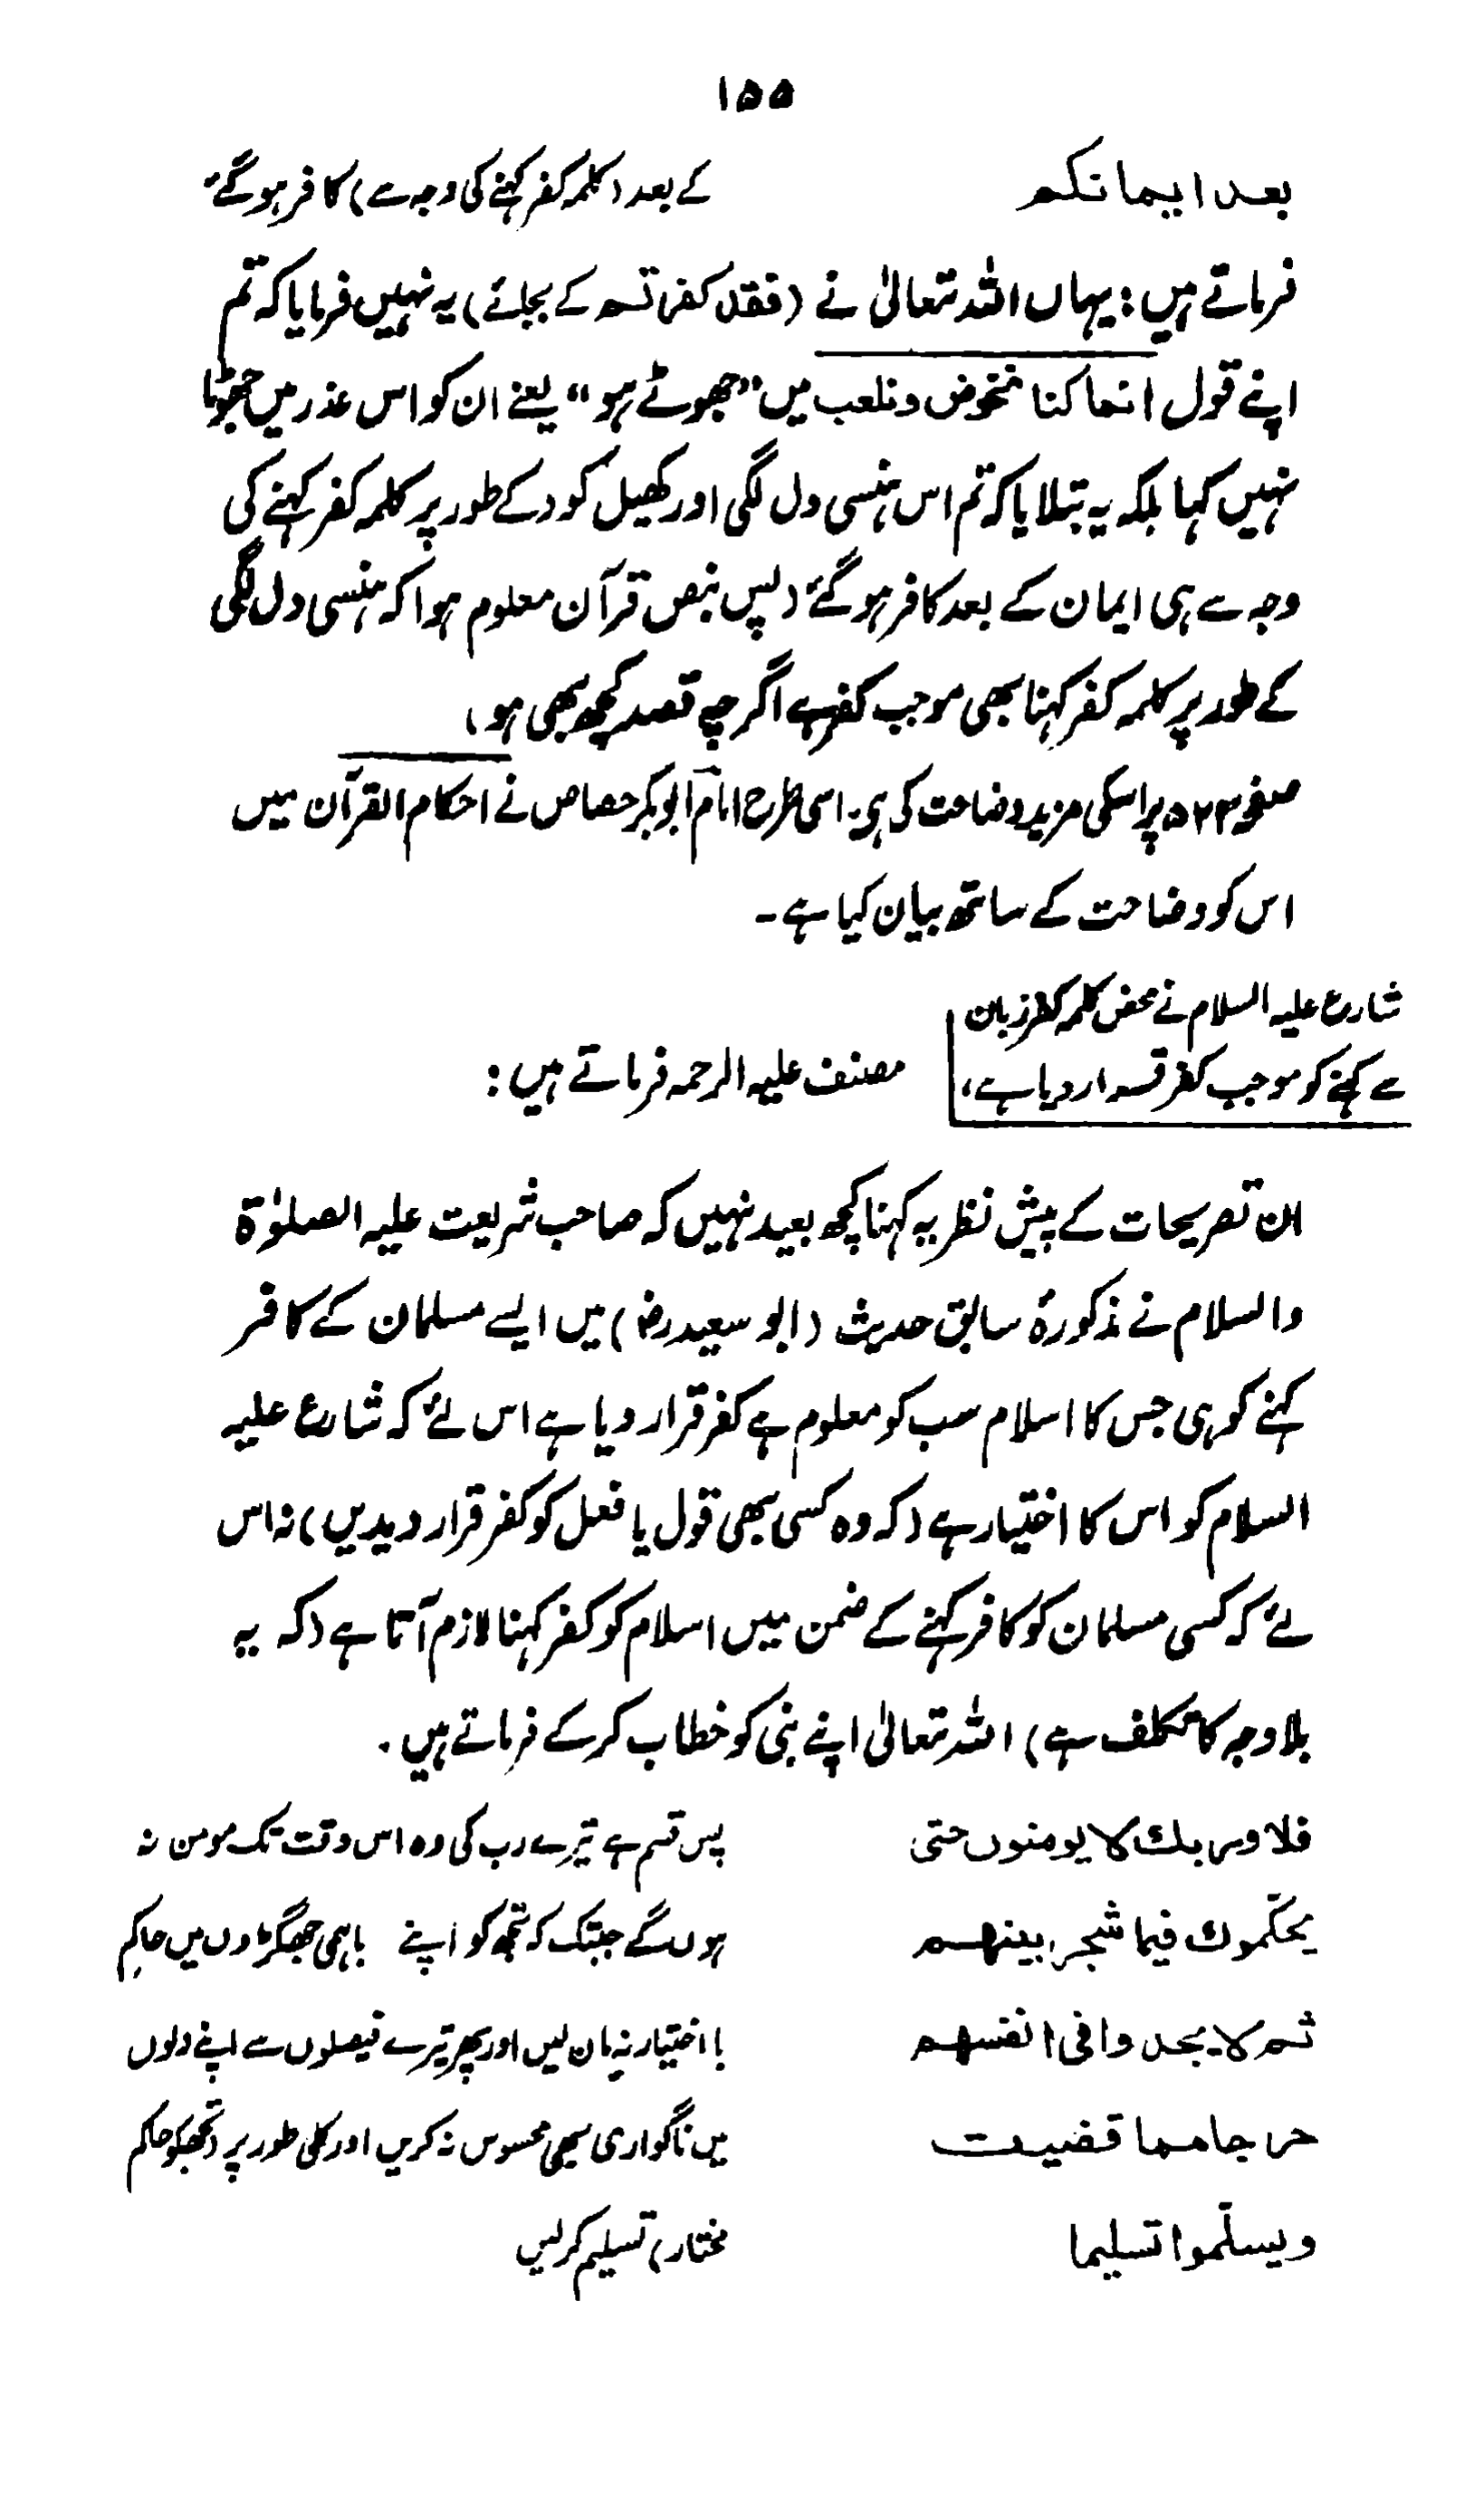 ۱۵۵
بعد ایمانکم کے بعد (کلمہ کفر کہنے کی وجہ سے) کافر ہو گئے"
فرماتے ہیں: یہاں اللہ تعالیٰ نے (فقد کفرتم کے بجائے) یہ نہیں فرمایا کہ تم
اپنے قول انما کنا نخوض ونلعب میں "جھوٹے ہو" یعنے ان کو اس عذر میں جھوٹا
نہیں کہا بلکہ یہ بتلایا کہ تم اس ہنسی دل لگی اور کھیل کود کے طور پر کلمہ کفر کہنے کی
وجہ سے ہی ایمان کے بعد کافر ہو گئے (پس بنص قرآن معلوم ہوا کہ ہنسی دل لگی
کے طور پر کلمہ کفر کہنا بھی موجب کفر ہے اگرچہ قصد کچھ بھی ہو)
صفحہ ۵۲۳ پر اسکی مزید وضاحت کی ہی۔ اسی طرح امام ابوبکر حصاص نے احکام القرآن میں
اس کو وضاحت کے ساتھ بیان کیا ہے۔
شارع علیہ السلام نے محض کلمہ کفر زبان
سے کہنے کو موجب کفر قرار دیا ہے،
مصنف علیہ الرحمہ فرماتے ہیں:
ان تصریحات کے پیش نظر یہ کہنا کچھ بعید نہیں کہ صاحب شریعت علیہ الصلوٰۃ
والسلام نے مذکورۂ سابق حدیث (ابو سعید رض) میں ایسے مسلمان کے کافر
کہنے کو ہی جس کا اسلام سب کو معلوم ہے کفر قرار دیا ہے اس لئے کہ شارع علیہ
السلام کو اس کا اختیار ہے (کہ وہ کسی بھی قول یا فعل کو کفر قرار دیدیں) نہ اس
لئے کہ کسی مسلمان کو کافر کہنے کے ضمن میں اسلام کو کفر کہنا لازم آتا ہے (کہ یہ
بلاوجہ کا تکلف ہے) اللہ تعالیٰ اپنے نبی کو خطاب کر کے فرماتے ہیں۔
فلا وربك لا یومنون حتی پس قسم ہے تیرے رب کی وہ اس وقت تک مومن نہ
یحکّموك فیما شجر بینهم ہوں گے جبتک کہ تجھ کو اپنے باہمی جھگڑوں میں حاکم
ثم لا یجدوا فی انفسهم بااختیار نہ مان لیں اور پھر تیرے فیصلوں سے اپنے دلوں
حرجا مما قضیت میں ناگواری بھی محسوس نہ کریں اور کلی طور پر (تجھکو حاکم
ویسلّموا تسلیما مختار) تسلیم کر لیں